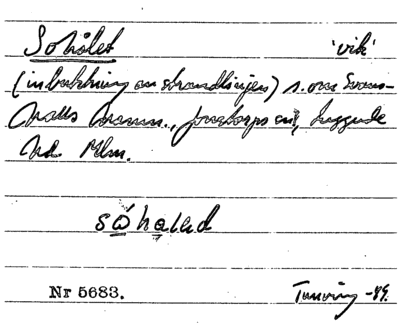 Sohålet 'vik'
(inbuktning av strandlinjen) s. om Svans-
halls hamn., Jonstorps sn, Luggude
hd Mlm.
sóhaled
Nr 5683. Tuneving -89.